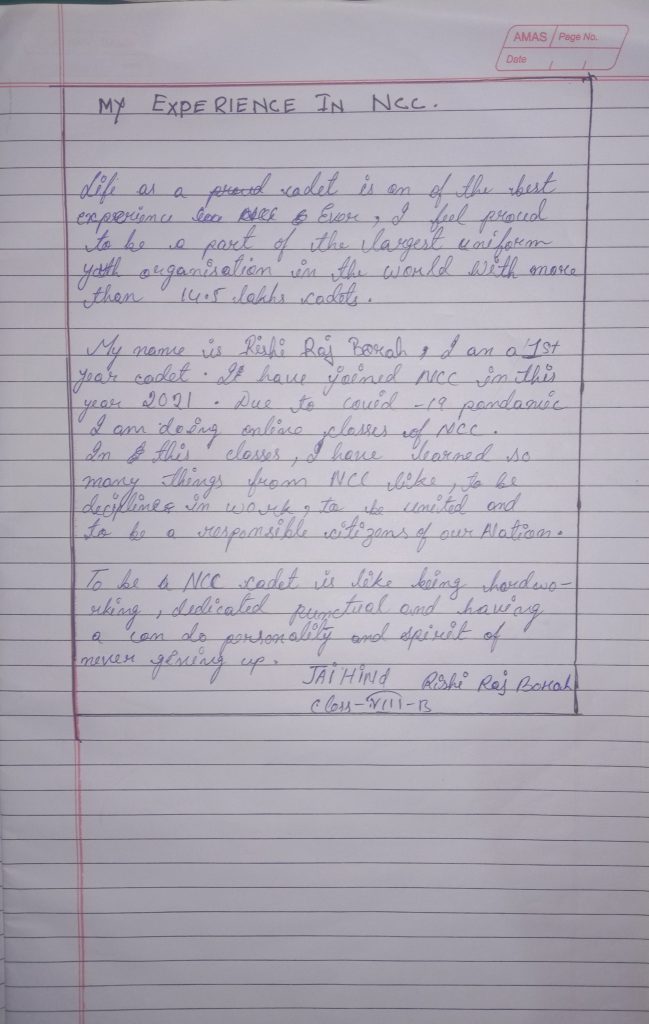 AMAS Page No.
Date / /
MY EXPERIENCE IN NCC.
Life as a proud cadet is on of the best
experience Ever, I feel proud
to be a part of the largest uniform
youth organisation in the world with more
than 14.5 lakhs cadets.
My name is Rishi Raj Borah, I am a 1st
year cadet. I have joined NCC in this
year 2021. Due to covid-19 pandamic
I am doing online classes of NCC.
In this classes, I have learned so
many things from NCC like, to be
decipline in work, to be united and
to be a responsible citizens of our Nation.
To be a NCC cadet is like being hardwo-
rking, dedicated punctual and having
a can do personality and spirit of
never giving up.
JAI HINd Rishi Raj Borah
Class-VIII-B